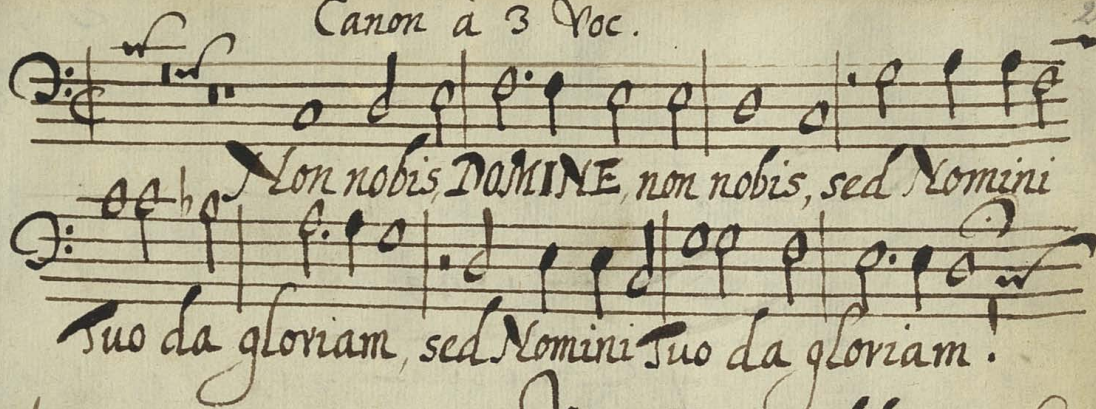 Canon a 3 Voc.
Non nobis, DOMINE, non nobis, sed Nomini
Tuo da gloriam, sed Nomini Tuo da gloriam.